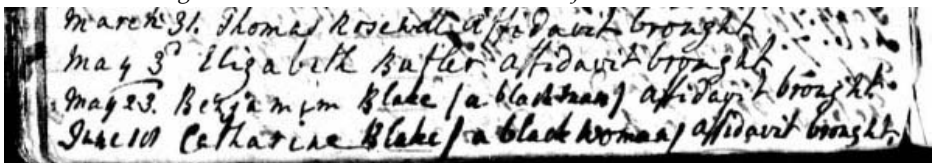 March 31. Thomas Rosewell affidavit brought
May 3d Elizabeth Butler affidavit brought
May 23. Benjamin Blake (a blackman) affidavit brought.
June 18 Catharine Blake (a black woman) affidavit brought.